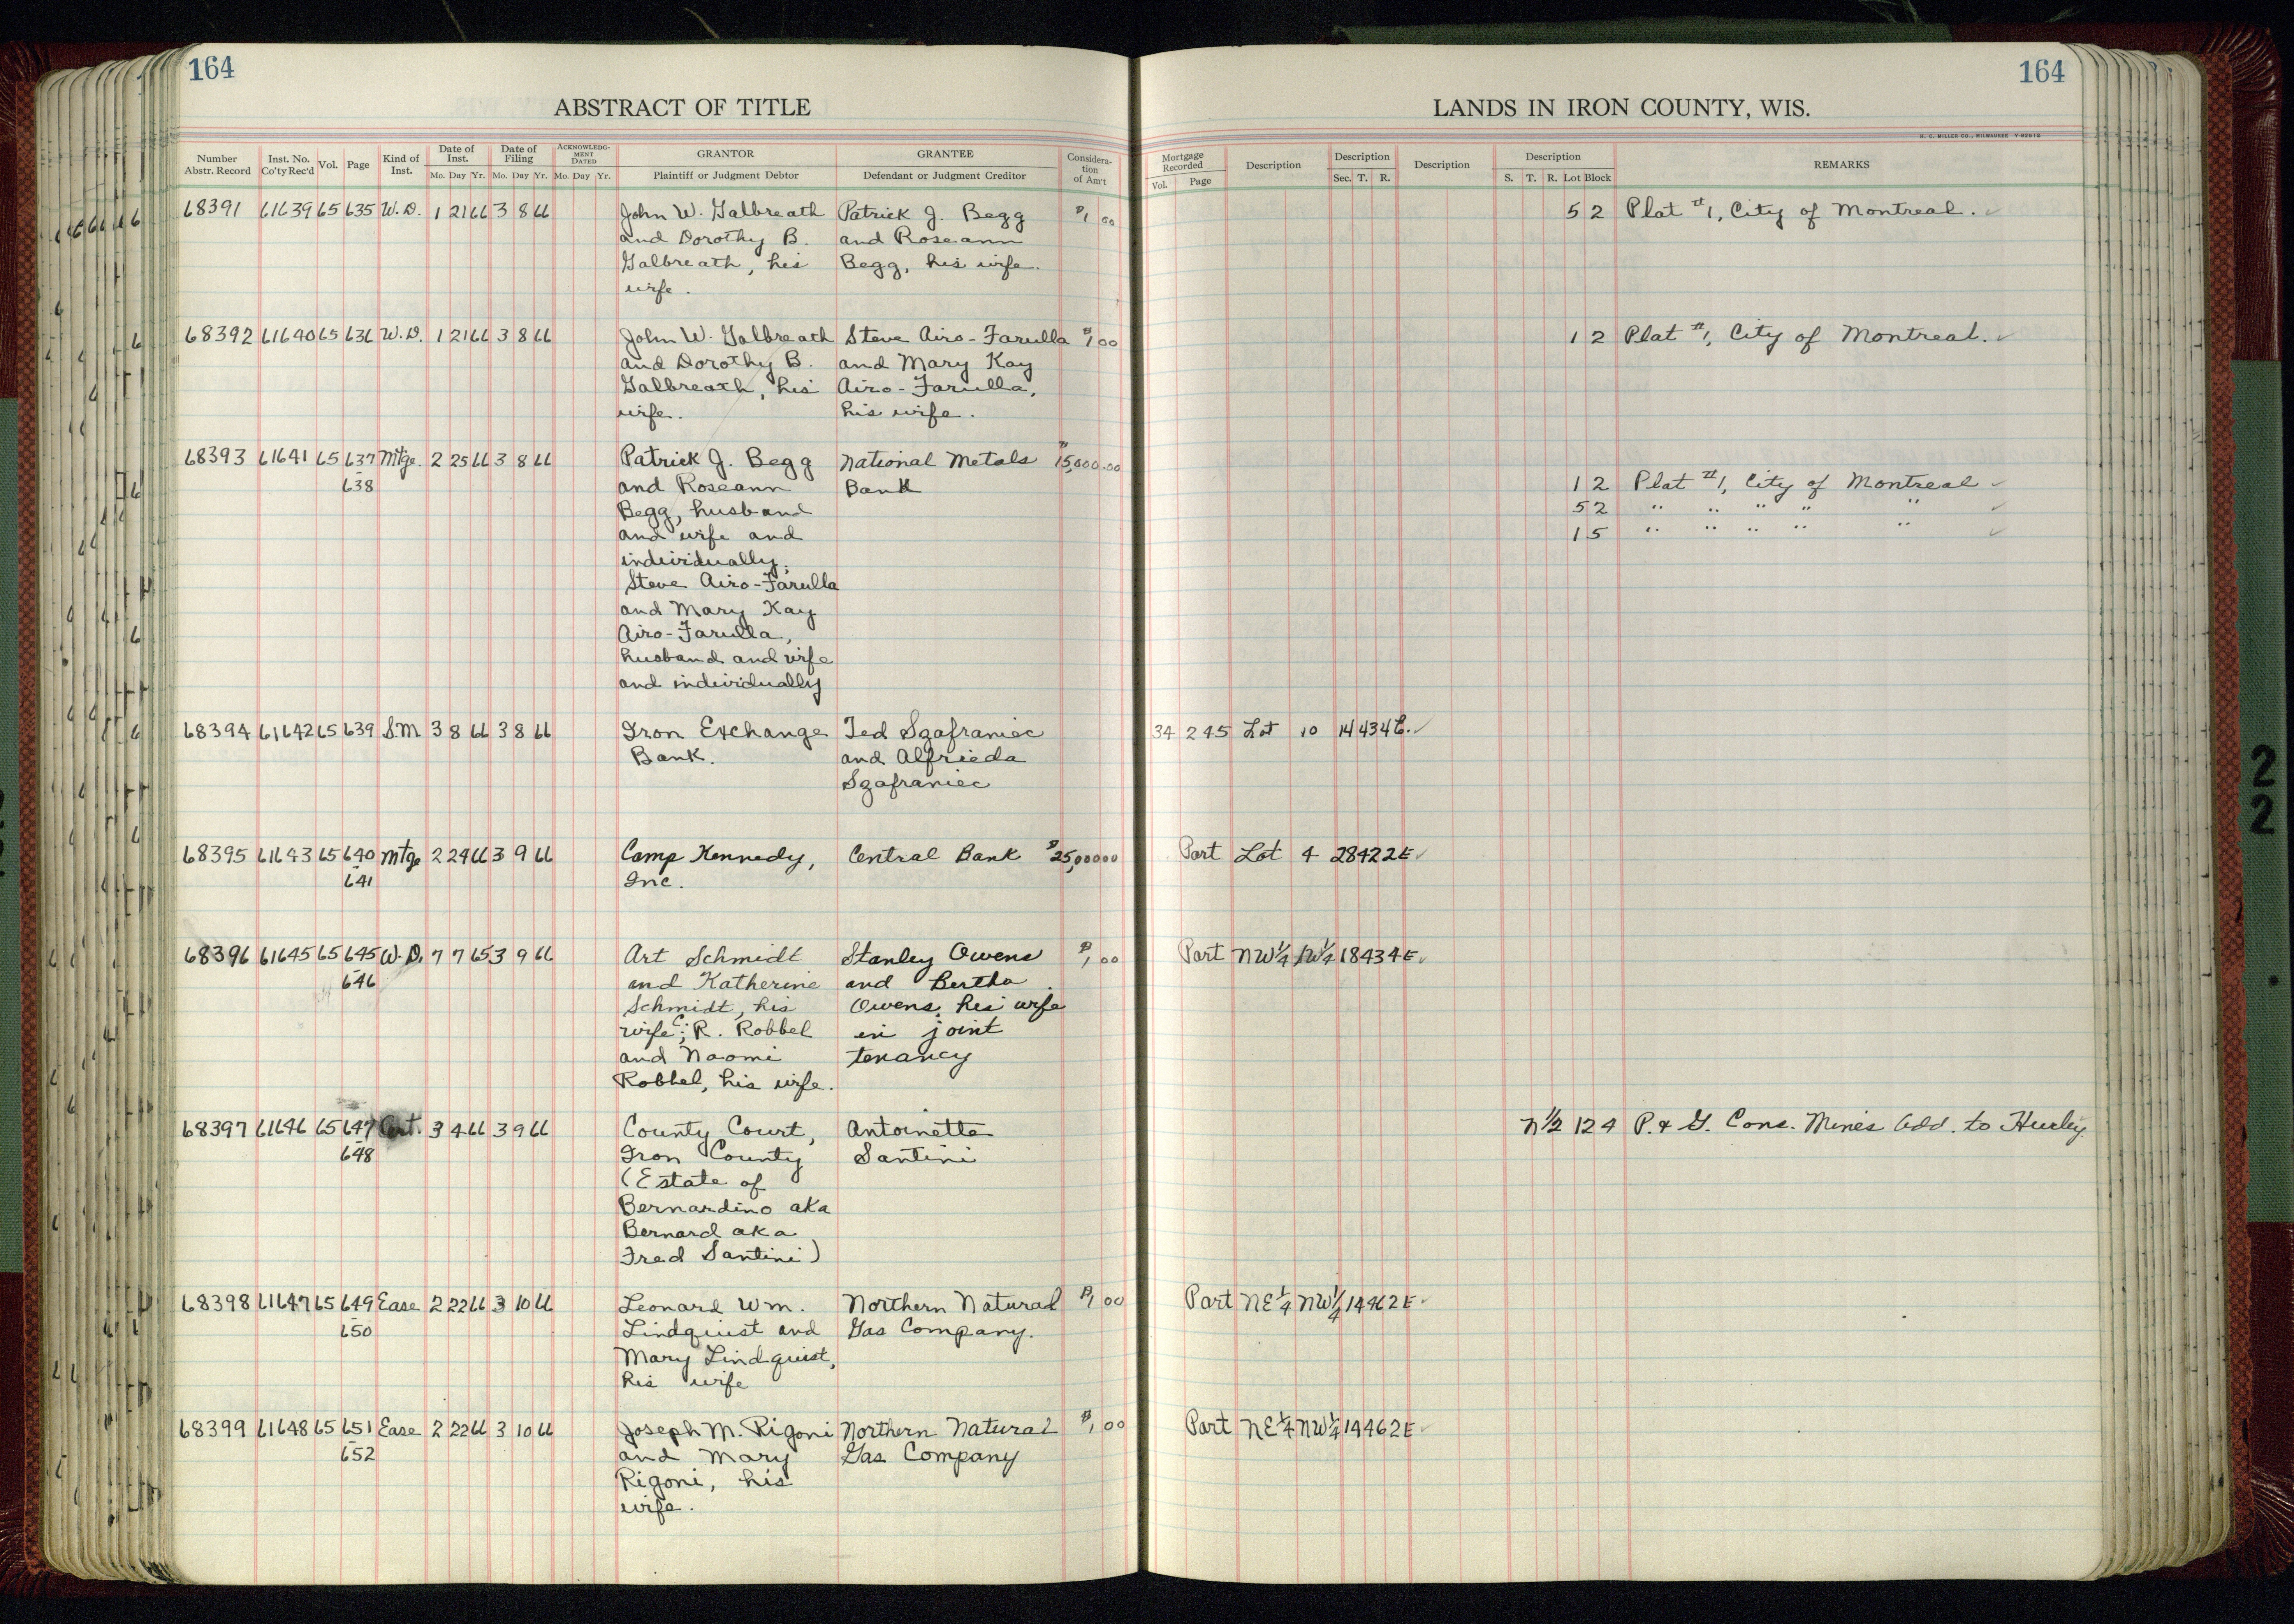 164
164
ABSTRACT OF TITLE
LANDS IN IRON COUNTY, WIS.
H. C. MILLER CO., MILWAUKEE
Number Abstr. Record Inst. No. Co'ty Rec'd Vol. Page Kind of Inst. Date of Inst. Mo. Day Yr. Date of Filing Mo. Day Yr. ACKNOWLEDGMENT DATED Mo. Day Yr. GRANTOR Plaintiff or Judgment Debtor GRANTEE Defendant or Judgment Creditor Consideration of Am't
Mortgage Recorded Vol. Page Description Description Sec. T. R. Description Description S. T. R. Lot Block REMARKS
68391 61639 65 635 W.D. 1 21 66 3 8 66 John W. Galbreath Patrick J. Begg $1 00 5 2 Plat #1, City of Montreal.
and Dorothy B. and Roseann
Galbreath, his Begg, his wife.
wife.
68392 61640 65 636 W.D. 1 21 66 3 8 66 John W. Galbreath Steve Airo-Farulla $1 00 1 2 Plat #1, City of Montreal.
and Dorothy B. and Mary Kay
Galbreath, his Airo-Farulla,
wife. his wife.
68393 61641 65 637 Mtge. 2 25 66 3 8 66 Patrick J. Begg National Metals $15,000.00
638 and Roseann Bank 1 2 Plat #1, City of Montreal
Begg, husband 5 2 " " " " "
and wife and 1 5 " " " " "
individually;
Steve Airo-Farulla
and Mary Kay
Airo-Farulla,
husband and wife
and individually
68394 61642 65 639 S.M. 3 8 66 3 8 66 Iron Exchange Ted Szafraniec 34 245 Lot 10 14 43 4 E.
Bank. and Alfrieda
Szafraniec
68395 61643 65 640 Mtge 2 24 66 3 9 66 Camp Kennedy, Central Bank $25,000 00 Part Lot 4 28 42 2E
641 Inc.
68396 61645 65 645 W.D. 7 7 65 3 9 66 Art Schmidt Stanley Owens $1 00 Part NW1/4 NW1/4 18 43 4E
646 and Katherine and Bertha
Schmidt, his Owens, his wife
wife; C. R. Robbel in joint
and Naomi tenancy
Robbel, his wife.
68397 61646 65 647 Cert. 3 4 66 3 9 66 County Court, Antoinette N1/2 12 4 P. & G. Cons. Mines Add. to Hurley.
648 Iron County Santini
(Estate of
Bernardino aka
Bernard aka
Fred Santini)
68398 61647 65 649 Ease 2 22 66 3 10 66 Leonard Wm. Northern Natural $1 00 Part NE1/4 NW1/4 14 46 2E
650 Lindquist and Gas Company.
Mary Lindquist,
his wife
68399 61648 65 651 Ease 2 22 66 3 10 66 Joseph M. Rigoni Northern Natural $1 00 Part NE1/4 NW1/4 14 46 2E
652 and Mary Gas Company
Rigoni, his
wife.